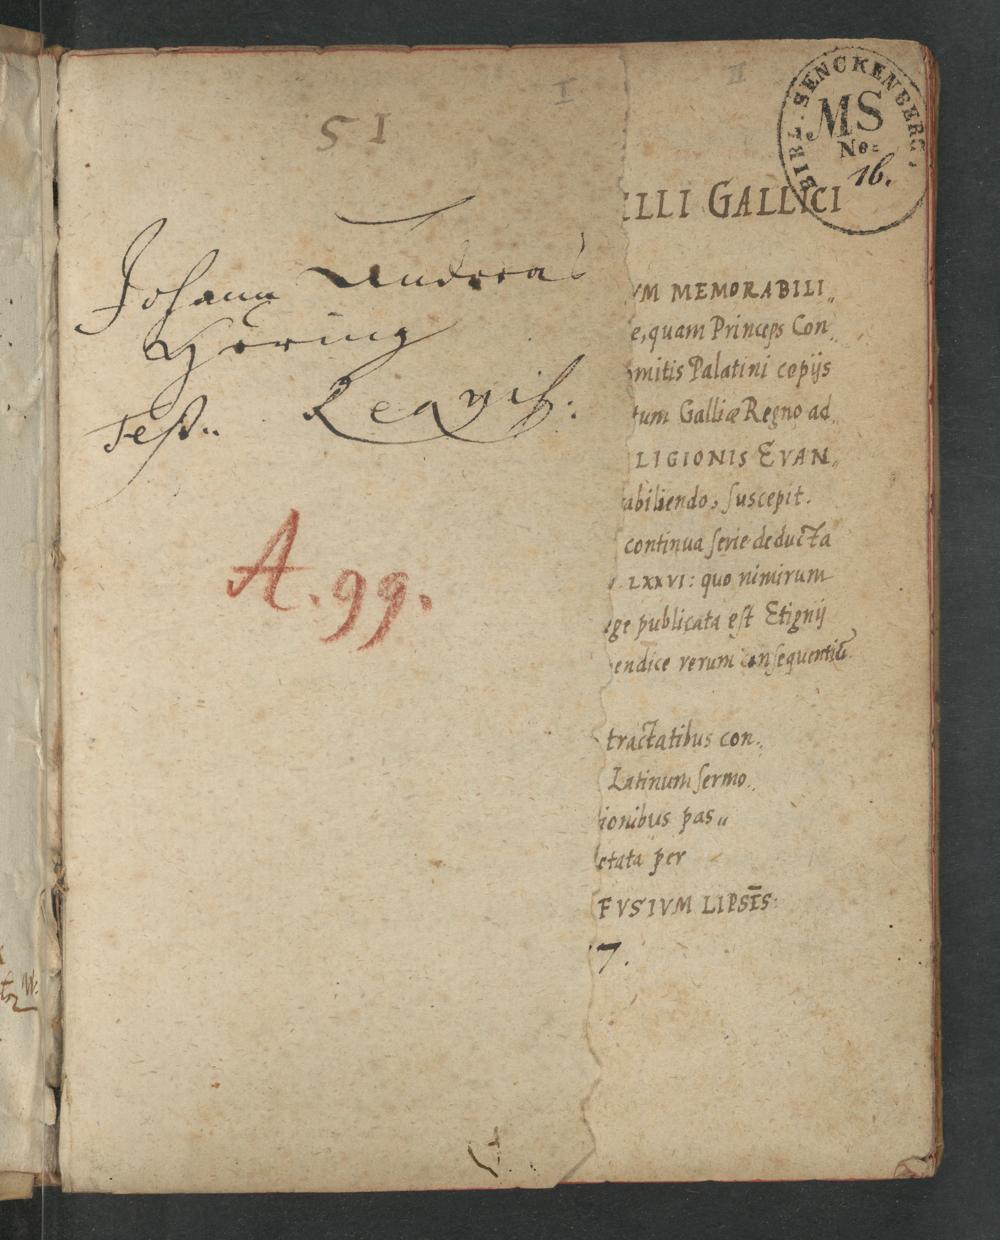 51
I
II
BIBL. SENCKENBERG.
MS
No:
16.
Johann Andreas
Höring
A. 99.
ELLI GALLICI
VM MEMORABILI„
e, quam Princeps Con„
mitis Palatini copijs
tum Galliæ Regno ad„
LIGIONIS EVAN„
abiliendo, suscepit.
continua serie deducta
LXXVI: quo nimirum
ge publicata est Etignij
endice rerum consequentiū
tractatibus con„
Latinum sermo„
ionibus pas„
etata per
FVSIVM LIPSĒS:
7.